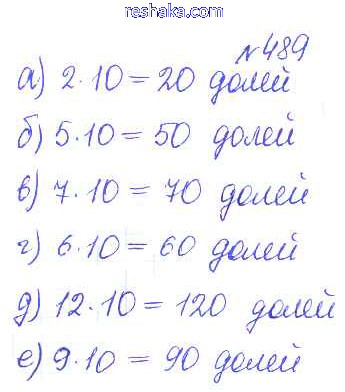 reshaka.com
№489
а) 2·10=20 долей
б) 5·10=50 долей
в) 7·10=70 долей
г) 6·10=60 долей
д) 12·10=120 долей
е) 9·10=90 долей